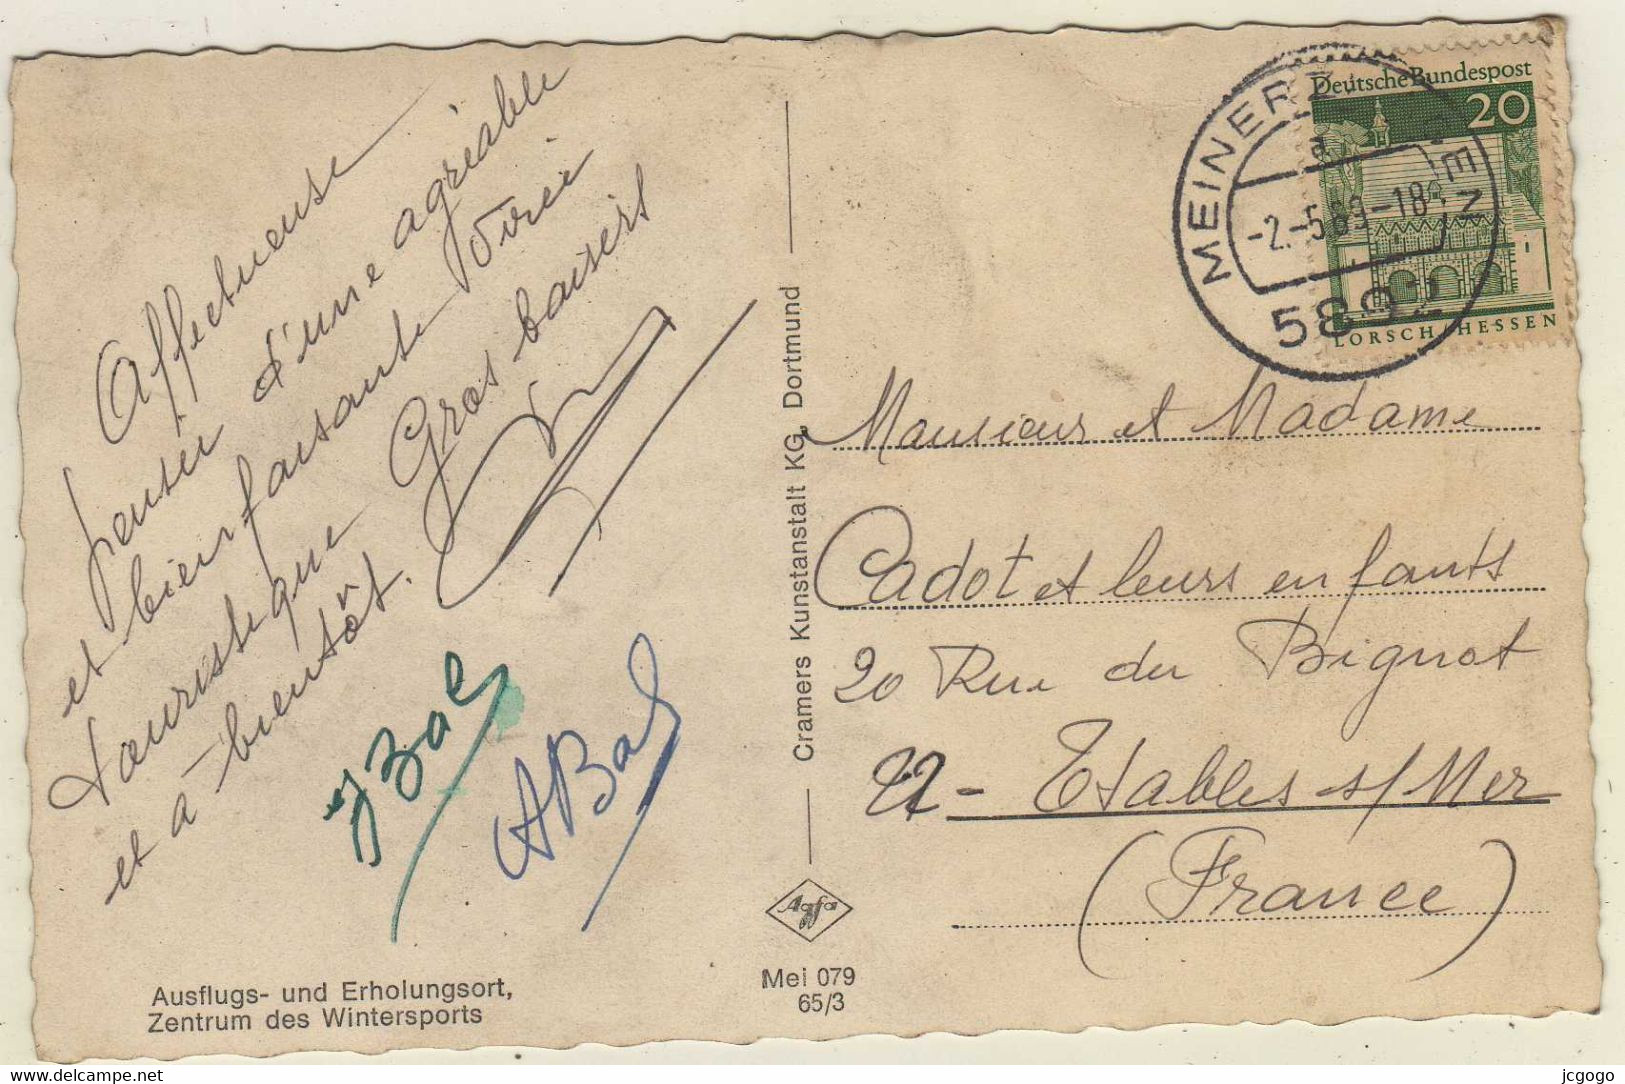 Affectueuse
pensée d'une agréable
et bien faisante virée
touristique Gros baisers
et à - bientôt.
JBal
ABal
Ausflugs- und Erholungsort,
Zentrum des Wintersports
Cramers Kunstanstalt KG, Dortmund
Agfa
Mei 079
65/3
Deutsche Bundespost
20
LORSCH/HESSEN
MEINERZ
EN
a
-2.-5.69-18
5892
Monsieur et Madame
Cadot et leurs enfants
20 Rue du Bignot
22 - Etables s/Mer
(France)
delcampe.net
jcgogo